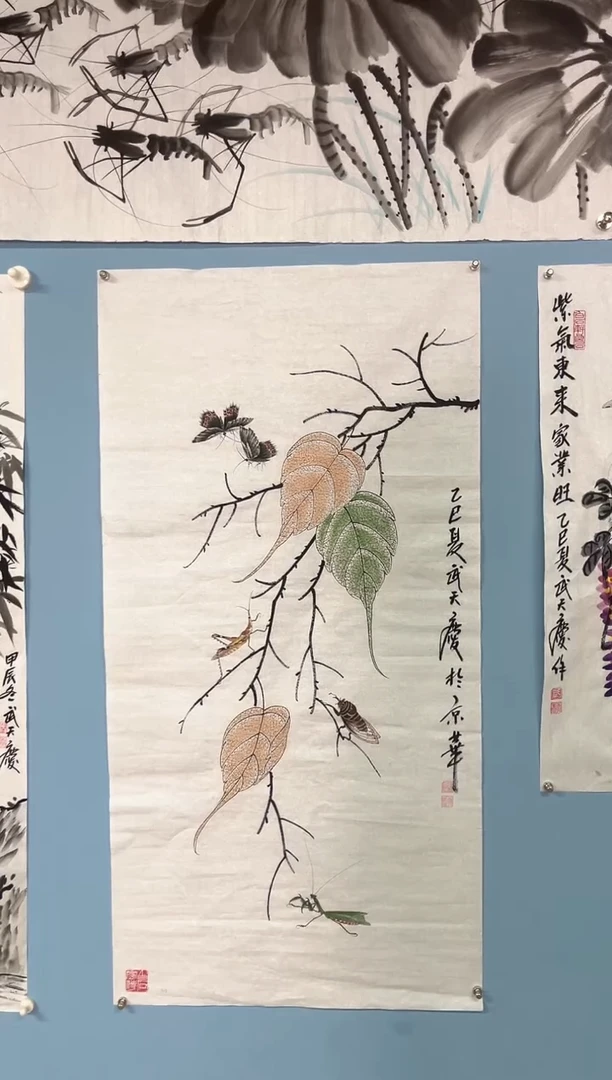 乙巳夏武天慶於京華
紫氣東来家業旺乙巳夏武天慶作
甲辰冬武天慶